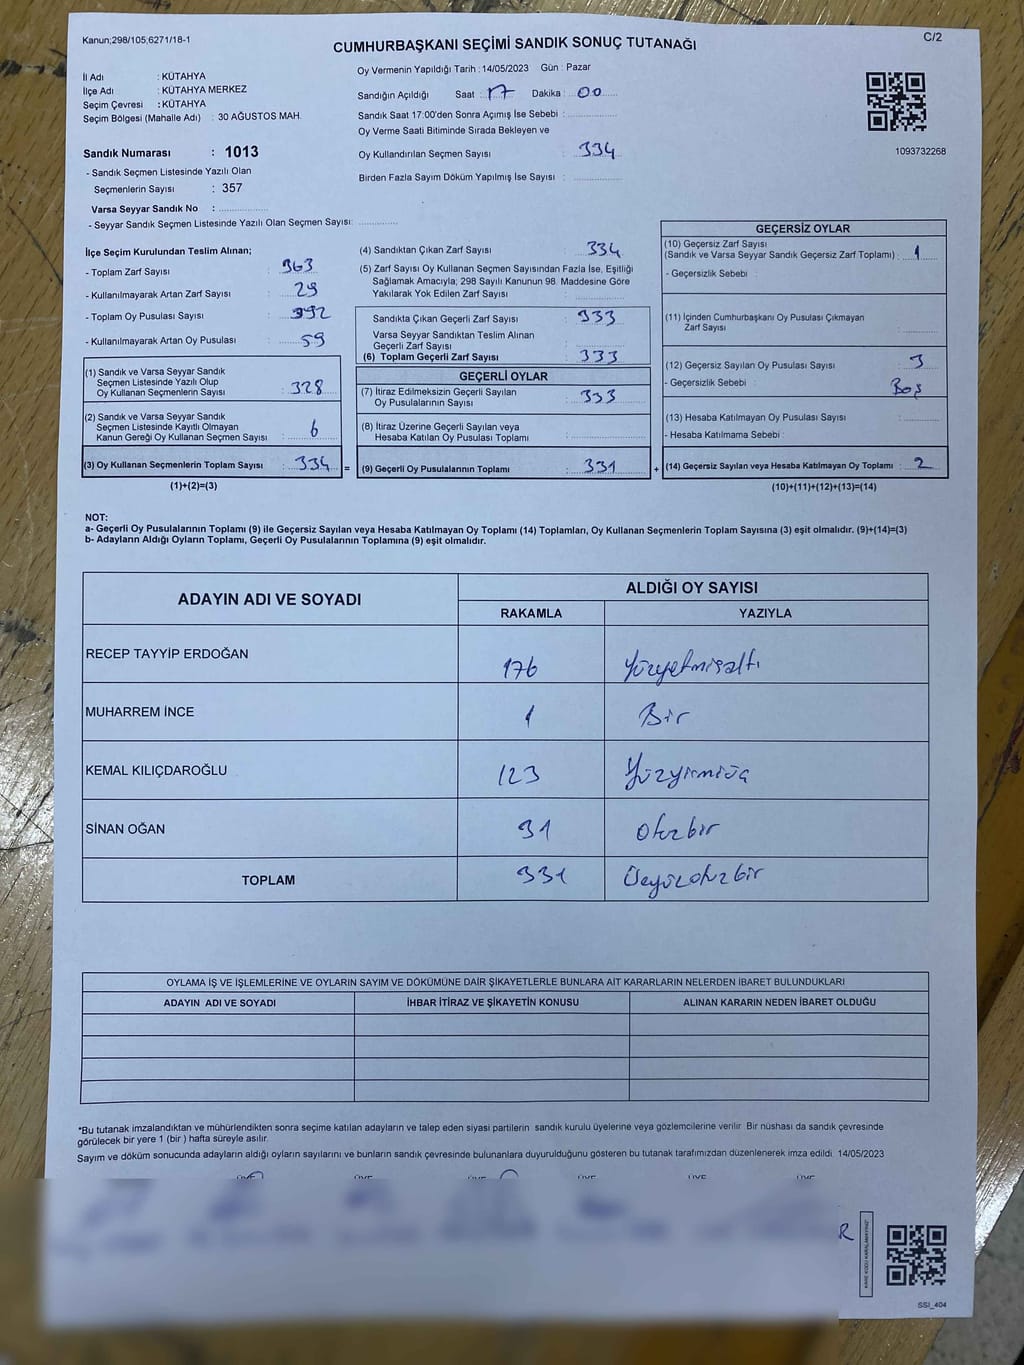 Kanun;298/105;6271/18-1
C/2
CUMHURBAŞKANI SEÇİMİ SANDIK SONUÇ TUTANAĞI
İl Adı : KÜTAHYA
İlçe Adı : KÜTAHYA MERKEZ
Seçim Çevresi : KÜTAHYA
Seçim Bölgesi (Mahalle Adı) : 30 AĞUSTOS MAH.
Sandık Numarası : 1013
- Sandık Seçmen Listesinde Yazılı Olan
Seçmenlerin Sayısı : 357
Varsa Seyyar Sandık No :
- Seyyar Sandık Seçmen Listesinde Yazılı Olan Seçmen Sayısı:
Oy Vermenin Yapıldığı Tarih : 14/05/2023 Gün : Pazar
Sandığın Açıldığı Saat : 17 Dakika : 00
Sandık Saat 17:00'den Sonra Açımış İse Sebebi :
Oy Verme Saati Bitiminde Sırada Bekleyen ve
Oy Kullandırılan Seçmen Sayısı : 334
Birden Fazla Sayım Döküm Yapılmış İse Sayısı :
1093732268
İlçe Seçim Kurulundan Teslim Alınan;
- Toplam Zarf Sayısı : 363
- Kullanılmayarak Artan Zarf Sayısı : 29
- Toplam Oy Pusulası Sayısı : 392
- Kullanılmayarak Artan Oy Pusulası : 59
(1) Sandık ve Varsa Seyyar Sandık
Seçmen Listesinde Yazılı Olup
Oy Kullanan Seçmenlerin Sayısı : 328
(2) Sandık ve Varsa Seyyar Sandık
Seçmen Listesinde Kayıtlı Olmayan
Kanun Gereği Oy Kullanan Seçmen Sayısı : 6
(3) Oy Kullanan Seçmenlerin Toplam Sayısı : 334 =
(1)+(2)=(3)
(4) Sandıktan Çıkan Zarf Sayısı : 334
(5) Zarf Sayısı Oy Kullanan Seçmen Sayısından Fazla İse, Eşitliği
Sağlamak Amacıyla; 298 Sayılı Kanunun 98. Maddesine Göre
Yakılarak Yok Edilen Zarf Sayısı :
Sandıkta Çıkan Geçerli Zarf Sayısı : 333
Varsa Seyyar Sandıktan Teslim Alınan
Geçerli Zarf Sayısı :
(6) Toplam Geçerli Zarf Sayısı : 333
GEÇERLİ OYLAR
(7) İtiraz Edilmeksizin Geçerli Sayılan
Oy Pusulalarının Sayısı : 333
(8) İtiraz Üzerine Geçerli Sayılan veya
Hesaba Katılan Oy Pusulası Toplamı :
(9) Geçerli Oy Pusulalarının Toplamı : 331 +
GEÇERSİZ OYLAR
(10) Geçersiz Zarf Sayısı
(Sandık ve Varsa Seyyar Sandık Geçersiz Zarf Toplamı) : 1
- Geçersizlik Sebebi :
(11) İçinden Cumhurbaşkanı Oy Pusulası Çıkmayan
Zarf Sayısı :
(12) Geçersiz Sayılan Oy Pusulası Sayısı : 3
- Geçersizlik Sebebi : Boş
(13) Hesaba Katılmayan Oy Pusulası Sayısı :
- Hesaba Katılmama Sebebi :
(14) Geçersiz Sayılan veya Hesaba Katılmayan Oy Toplamı : 2
(10)+(11)+(12)+(13)=(14)
NOT:
a- Geçerli Oy Pusulalarının Toplamı (9) ile Geçersiz Sayılan veya Hesaba Katılmayan Oy Toplamı (14) Toplamları, Oy Kullanan Seçmenlerin Toplam Sayısına (3) eşit olmalıdır. (9)+(14)=(3)
b- Adayların Aldığı Oyların Toplamı, Geçerli Oy Pusulalarının Toplamına (9) eşit olmalıdır.
ADAYIN ADI VE SOYADI
ALDIĞI OY SAYISI
RAKAMLA YAZIYLA
RECEP TAYYİP ERDOĞAN 176 Yüzyetmişaltı
MUHARREM İNCE 1 Bir
KEMAL KILIÇDAROĞLU 123 Yüzyirmiüç
SİNAN OĞAN 31 Otuzbir
TOPLAM 331 Üçyüzotuzbir
OYLAMA İŞ VE İŞLEMLERİNE VE OYLARIN SAYIM VE DÖKÜMÜNE DAİR ŞİKAYETLERLE BUNLARA AİT KARARLARIN NELERDEN İBARET BULUNDUKLARI
ADAYIN ADI VE SOYADI İHBAR İTİRAZ VE ŞİKAYETİN KONUSU ALINAN KARARIN NEDEN İBARET OLDUĞU
*Bu tutanak imzalandıktan ve mühürlendikten sonra seçime katılan adayların ve talep eden siyasi partilerin sandık kurulu üyelerine veya gözlemcilerine verilir. Bir nüshası da sandık çevresinde
görülecek bir yere 1 (bir ) hafta süreyle asılır.
Sayım ve döküm sonucunda adayların aldığı oyların sayılarını ve bunların sandık çevresinde bulunanlara duyurulduğunu gösteren bu tutanak tarafımızdan düzenlenerek imza edildi. 14/05/2023
SSI_404